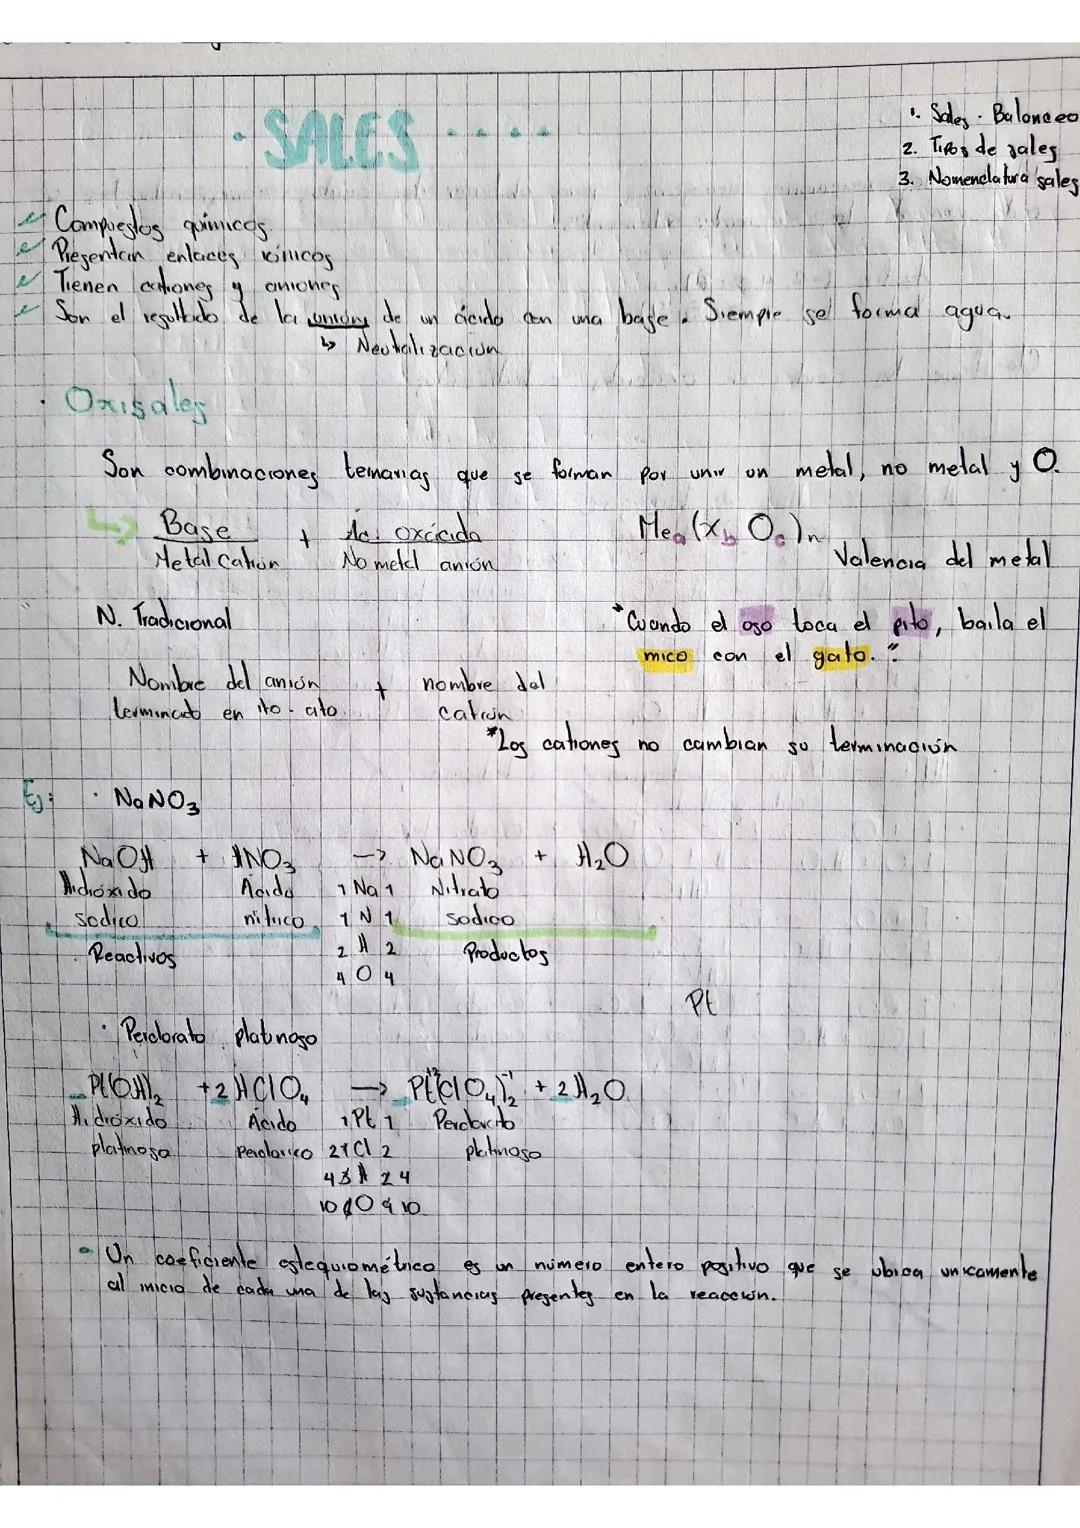 · SALES ····
1. Sales - Balanceo
2. Tipos de sales
3. Nomenclatura sales
Compuestos químicos
Presentan enlaces iónicos
Tienen cationes y aniones
Son el resultado de la unión de un ácido con una base. Siempre se forma agua.
↳ Neutralización
· Oxisales
Son combinaciones ternarias que se forman por unir un metal, no metal y O.
↳ Base + Ac. oxácido Meₐ(X_b O_c)n
Metal Catión No metal anión Valencia del metal
N. Tradicional
"Cuando el oso toca el pito, baila el
mico con el gato."
Nombre del anión + nombre del
terminado en ito - ato catión
*Los cationes no cambian su terminación
Ej: · NaNO₃
NaOH + HNO₃ → NaNO₃ + H₂O
Hidróxido Ácido 1 Na 1 Nitrato
sodico nítrico 1 N 1 sodico
Reactivos 2 H 2 Productos
4 O 4
Pt
· Perclorato platinoso
Pt(OH)₂ + 2HClO₄ → Pt⁺²(ClO₄)₂⁻¹ + 2H₂O
Hidróxido Ácido 1 Pt 1 Perclorato
platinoso perclórico 2 1 Cl 2 platinoso
4 3 H 2 4
10 6 O 9 10
• Un coeficiente estequiométrico es un número entero positivo que se ubica unicamente
al inicio de cada una de las sustancias presentes en la reacción.